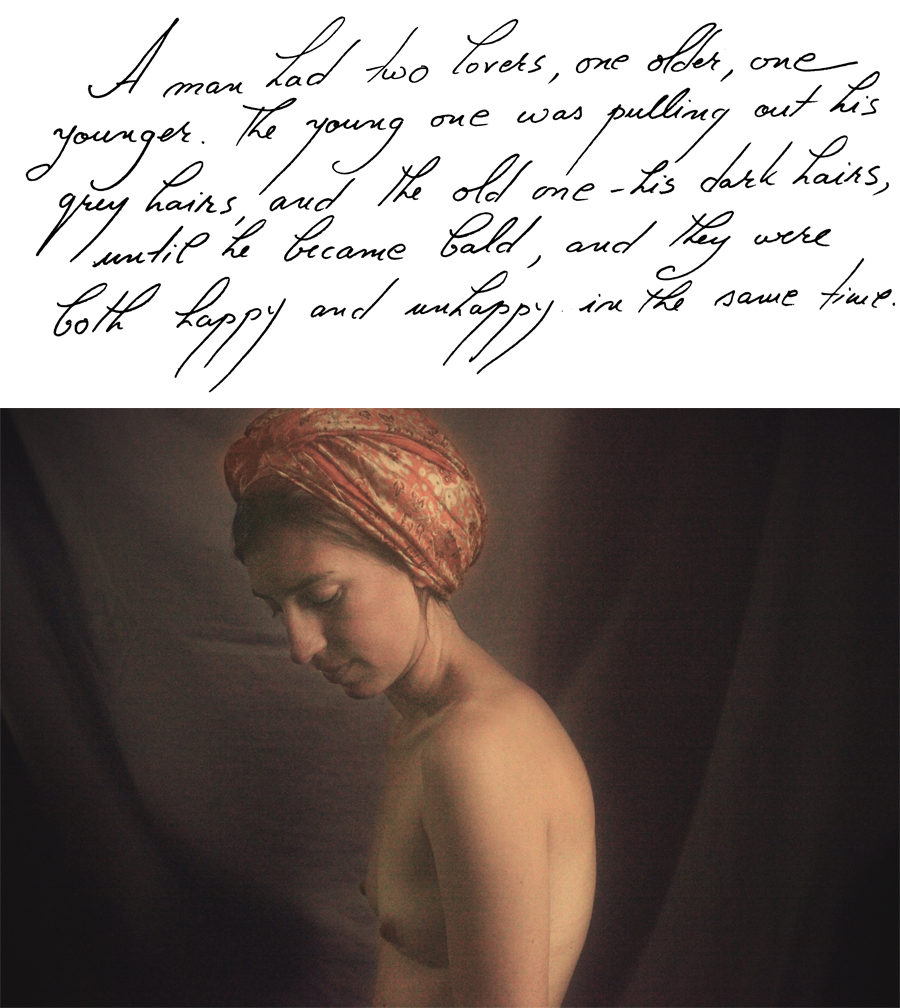 A man had two lovers, one older, one
younger. The young one was pulling out his
grey hairs, and the old one - his dark hairs,
until he became bald, and they were
both happy and unhappy in the same time.